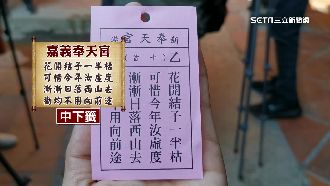 SETN三立新聞網
嘉義奉天宮
花開結子一半枯
可惜今年汝虛度
漸漸日落西山去
勸均不用向前途
中下籤
宮天奉
乙
花開結子一半枯
可惜今年汝虛度
漸漸日落西山去
用向前途